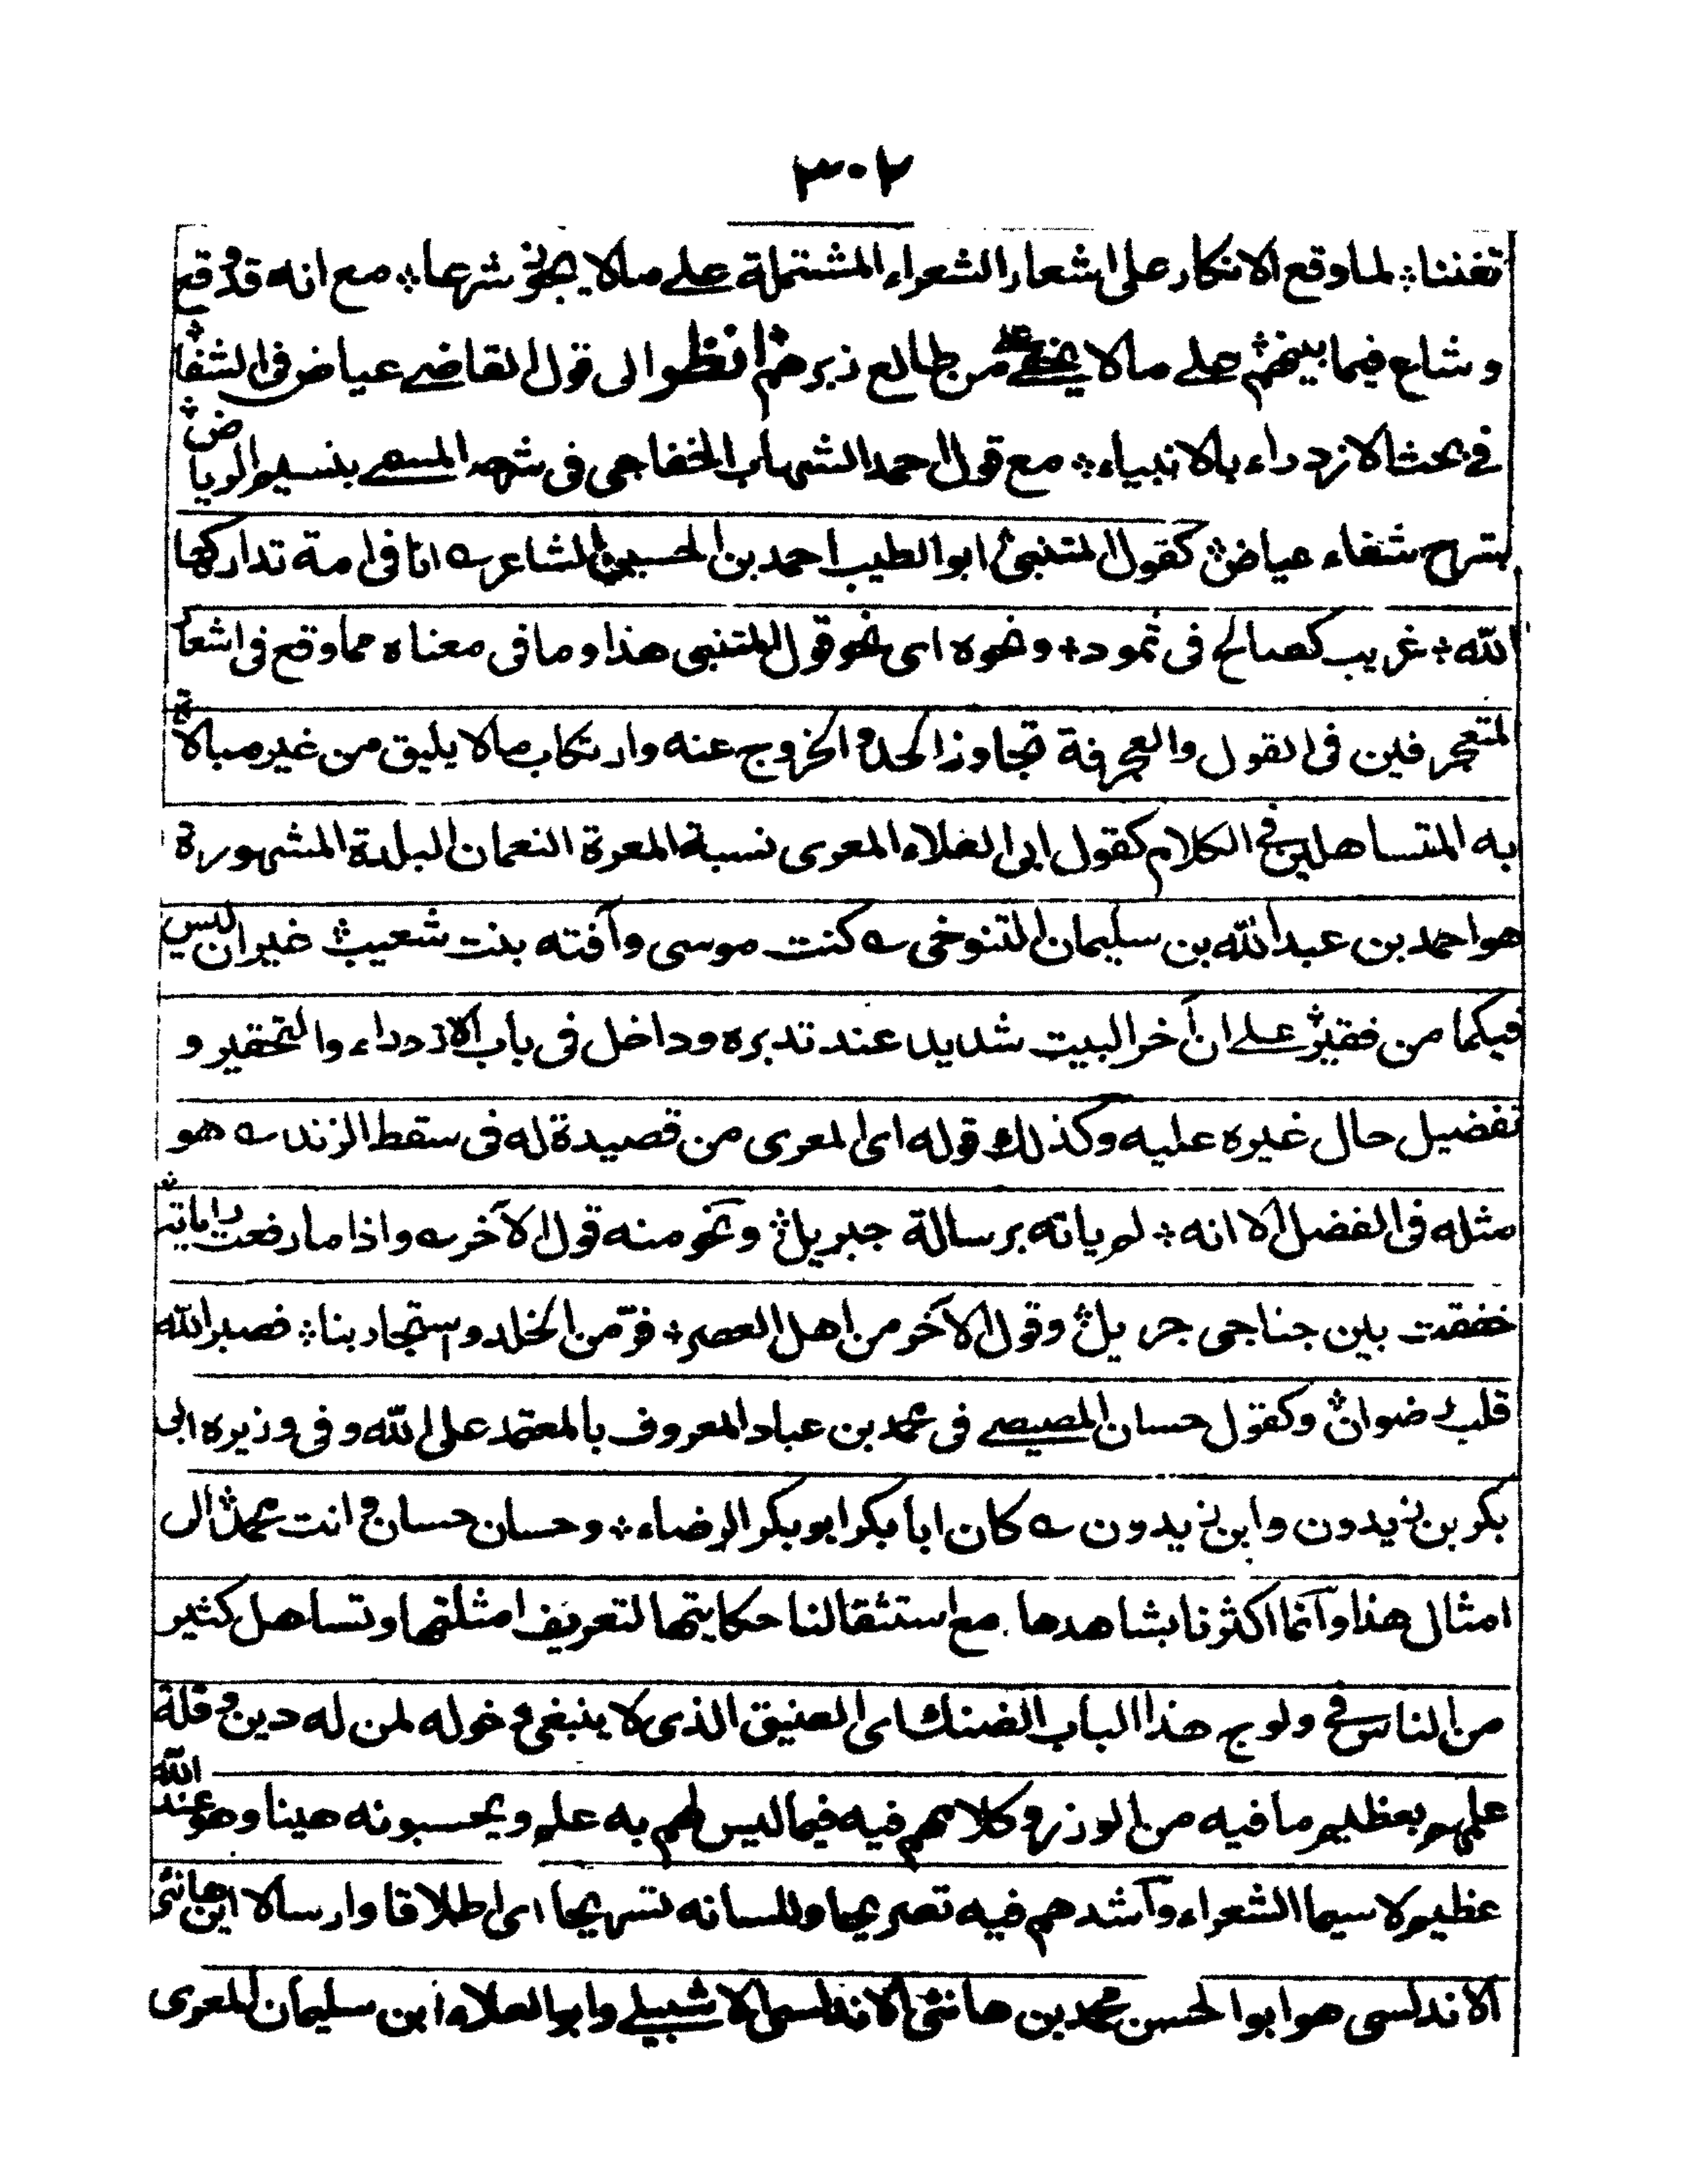 ٣٠٢
تفننا ؞ لما وقع الانكار على اشعار الشعراء المشتملة على مالا يجوز شرعا ؞ مع انه قد وقع
وشاع فيما بينهم ؞ على مالا يخفى على من طالع زبرهم ؞ انظروا الى قول القاضى عياض فى الشفا ؞
فى بحث الازدراء بالانبياء ؞ مع قول احمد الشهاب الخفاجى فى شرحه المسمى بنسيم الرياض ؞
بشرح شفاء عياض ؞ كقول المتنبئ ابو الطيب احمد بن الحسين الشاعر ؎ انا فى امة تداركها
الله ؞ غريب كصالح فى ثمود ؞ ونحوه اى نحو قول المتنبى هذا وما فى معناه مما وقع فى اشعار
المتعجرفين فى القول والعجرفة تجاوز الحد والخروج عنه وارتكاب مالا يليق من غير مبالاة
به المتساهلين فى الكلام كقول ابى العلاء المعرى نسبة المعرة النعمان البلدة المشهورة
هو احمد بن عبد الله بن سليمان التنوخى ؎ كنت موسى وآفته بنت شعيب ؞ غير ان ليس
فيكما من فقير ؞ على ان آخر البيت شديد عند تدبره وداخل فى باب الازدراء والتحقير و
تفضيل حال غيره عليه وكذلك قوله اى المعرى من قصيدة له فى سقط الزند ؎ هو
مثله فى الفضل الا انه ؞ لم ياته برسالة جبريل ؞ ونحو منه قول الآخر ؎ واذا ما رفعت راياته ؞
خفقت بين جناحى جبريل ؞ وقول الآخر من اهل العصر ؞ فرّ من الخلد واستجار بنا ؞ فصبر الله
قلب رضوان ؞ وكقول حسان المصيصى فى محمد بن عباد المعروف بالمعتمد على الله وفى وزيره ابى
بكر بن زيدون وابن زيدون ؎ كان ابا بكر ابو بكر الرضاء ؞ وحسان حسان وانت محمد ؞ الى
امثال هذا وآنما اكثرنا بشاهدها مع استثقالنا حكايتها لتعريف امثلتها وتساهل كثير
من الناس فى ولوج هذا الباب الضنك اى الضيق الذى لا ينبغى دخوله لمن له دين وقلة
علمهم بعظيم ما فيه من الوزر وكلامهم فيه فيما ليس لهم به علم ويحسبونه هينا وهو عند الله
عظيم لا سيما الشعراء وآشدهم فيه تصريحا وللسانه تسريحا اى اطلاقا وارسالا ابن هانئى
الاندلسى هو ابو الحسن محمد بن هانئى الاندلسى الاشبيلى وابو العلاء ابن سليمان المعرى